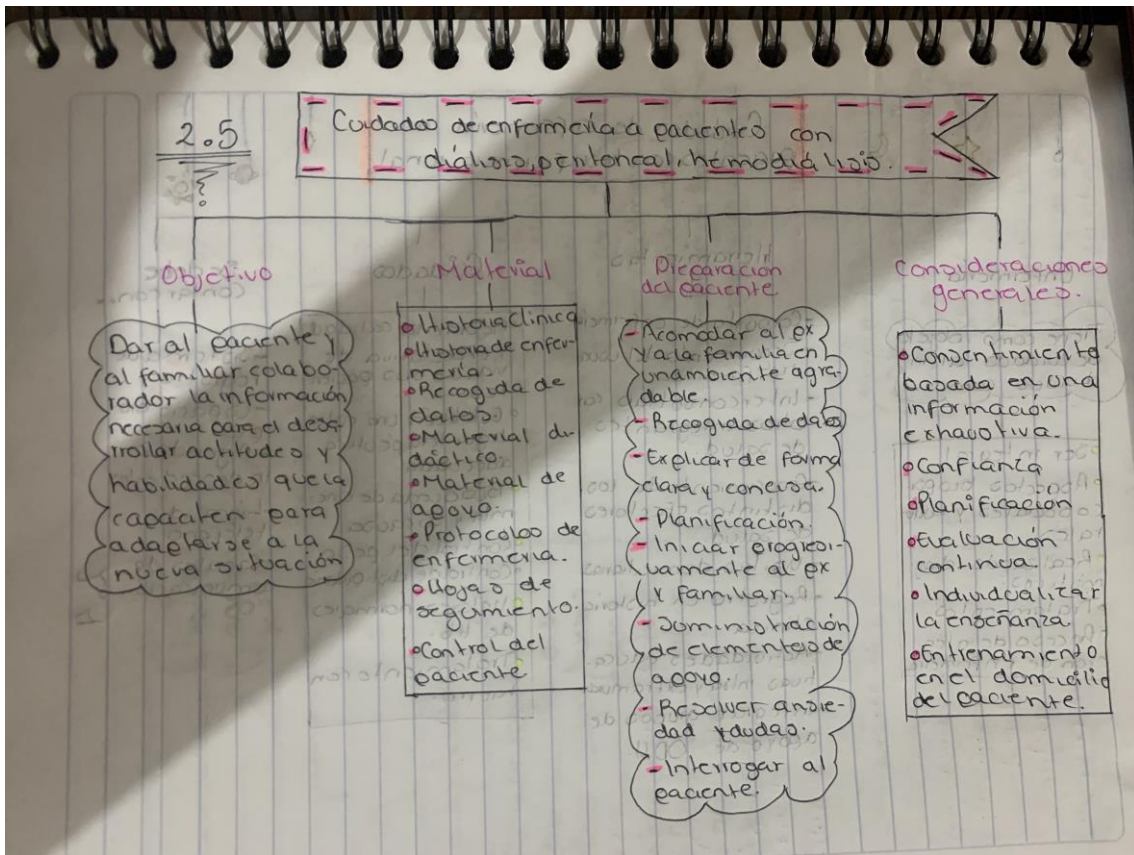 2.5
Cuidados de enfermería a pacientes con
diálisis, peritoneal, hemodiálisis.
Objetivo
Dar al paciente y
al familiar colabo-
rador la información
necesaria para el desa-
rrollar actitudes y
habilidades que la
capaciten para
adaptarse a la
nueva situación
Material
Historia Clinica
Historia de enfer-
mería.
Recogida de
datos.
Material di-
dáctico.
Material de
apoyo
Protocolos de
enfermeria.
Hojas de
seguimiento.
Control del
paciente
Preparación
del paciente
- Acomodar al px
y a la familia en
un ambiente agra-
dable.
- Recogida de datos
- Explicar de forma
clara y concisa.
- Planificación.
- Iniciar progresi-
vamente al px
y familiar.
- Suministración
de elementos de
apoyo.
- Resolver ansie-
dad y dudas.
- Interrogar al
paciente.
Consideraciones
generales.
Consentimiento
basada en una
información
exhaustiva.
Confianza
Planificación
Evaluación
continua.
Individualizar
la enseñanza
Entrenamiento
en el domicilio
del paciente.